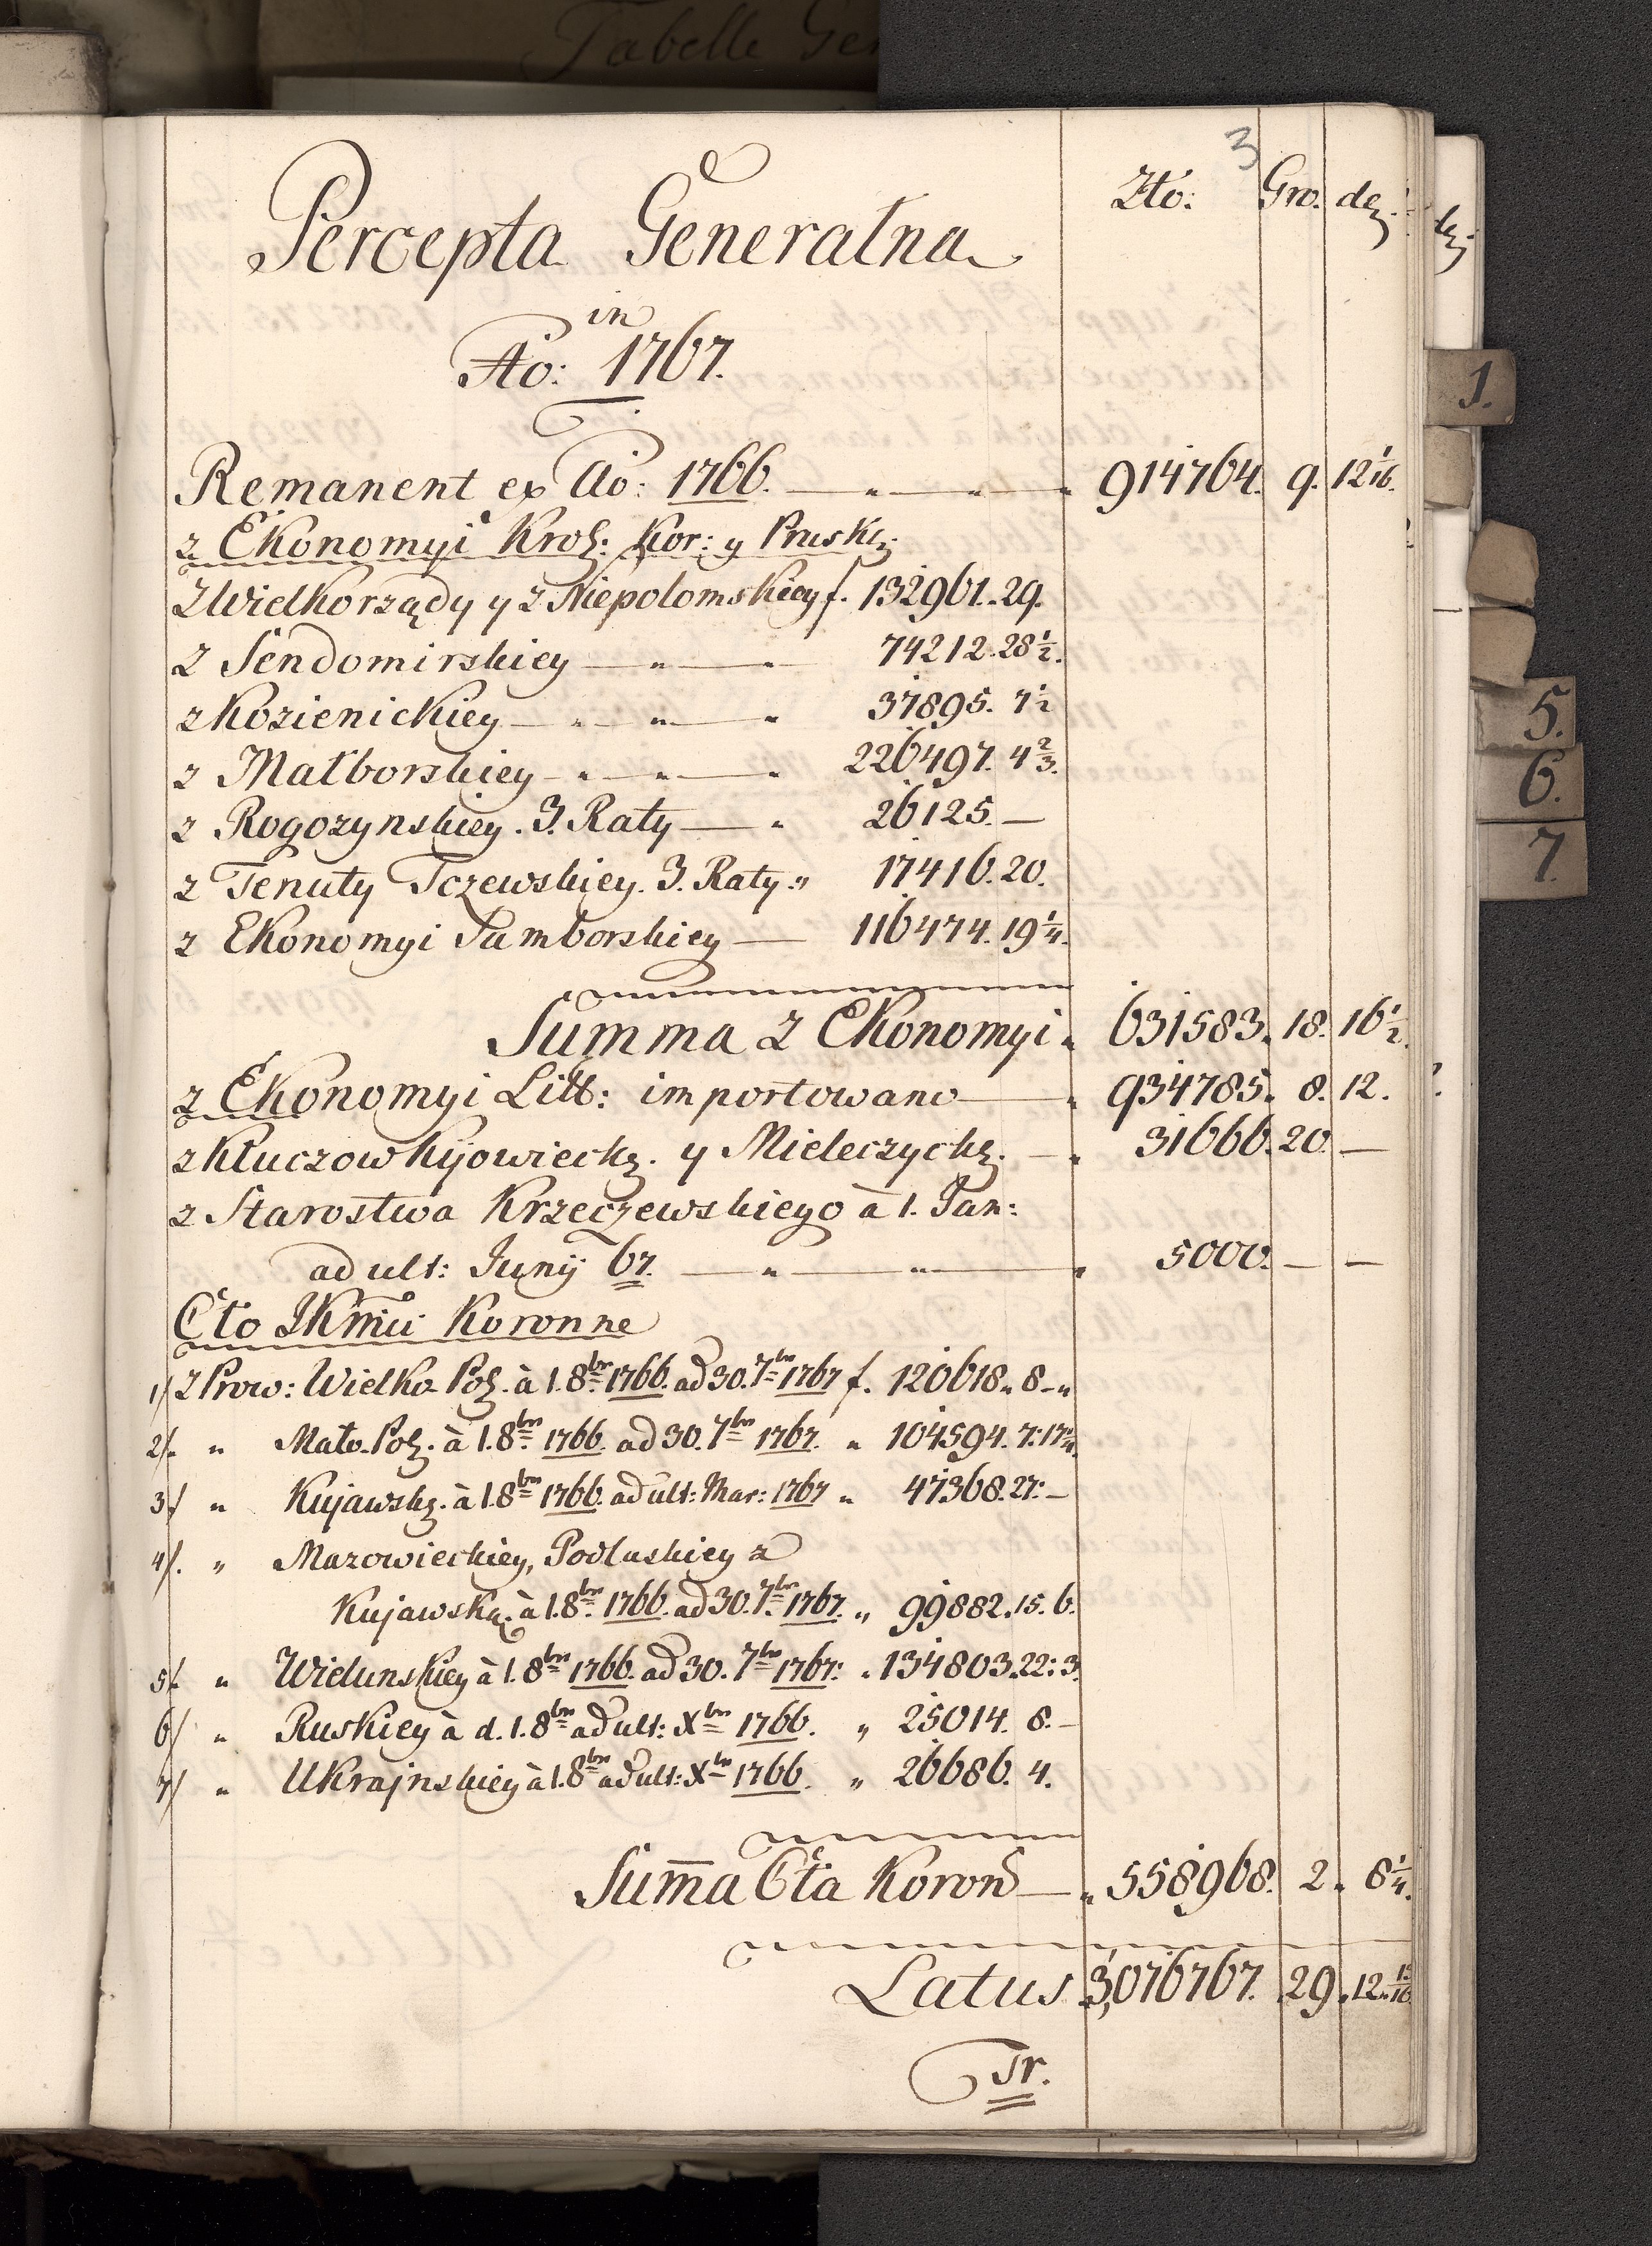 Tabelle Gen
3
Percepta Generalna
Złó: Gro. den:
in
Aō: 1767.
Remanent ex Aō: 1766. 914764. 9. 12 1/16.
z Ekonomyi Krol: Kor: y Pruski:
Z Wielkorządy y z Niepolomskiey f. 132961. 29.
z Sendomirskiey 74212. 28 1/2.
z Kozienickiey 37895. 7 1/2
z Malborskiey 226497. 4 2/3.
z Rogozynskiey. 3. Raty 26125. —
z Tenuty Tczewskiey. 3. Raty 17416. 20.
z Ekonomyi Samborskiey 116474. 19 1/4.
Summa z Ekonomyi 631583. 18. 16 1/2.
z Ekonomyi Litt: importowano 934785. 8. 12.
z Kluczow Kijowieckz. y Mieleczyckz. 31666. 20. —
z Starostwa Krzeczewskiego à 1. Jan:
ad ult: Junij 67. 5000. — —
Cło JKmci Koronne
1/ z Prow: Wielko Polz. à 1. 8br 1766. ad 30. 7br 1767 f. 120618. 8. —
2/. " Mało. Polz. à 1. 8br 1766. ad 30. 7br 1767. " 104594. 7: 17 1/4.
3/ " Kujawskz. à 1. 8br 1766. ad ult: Mar: 1767 " 47368. 27: —
4/. " Mazowieckiey, Podlaskiey z
Kujawską. à 1. 8br 1766. ad 30. 7br 1767. " 99882. 15. 6.
5/. " Wielunskiey à 1. 8br 1766. ad 30. 7br 1767: " 134803. 22: 3
6/ " Ruskiey à d. 1. 8br ad ult: Xbr 1766. " 25014. 8. —
7/ " Ukrajnskiey à 1. 8br ad ult: Xbr 1766. " 26686. 4.
Sum̄a Cła Koron 558968. 2. 8 1/4.
Latus 3,076767. 29. 12. 13/16
Tr.
1.
5.
6.
7.